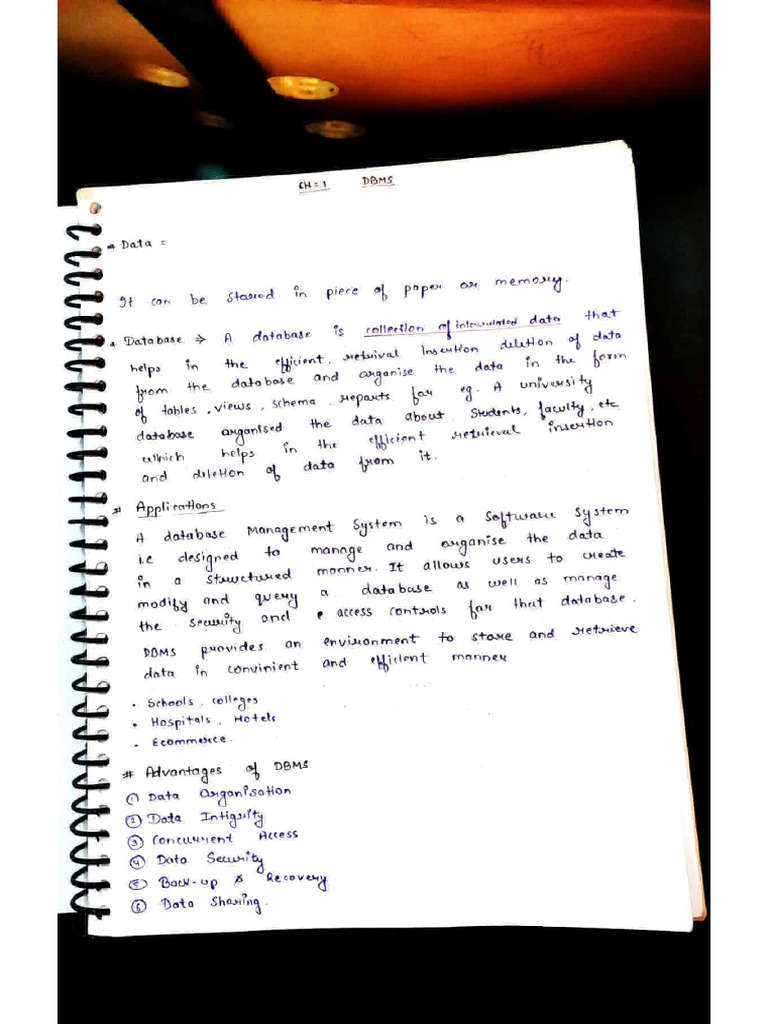 CH = 1 DBMS
# Data =
It can be stored in piece of paper or memory.
* Database ⇒ A database is collection of interrelated data that
helps in the efficient, retrival Insertion deletion of data
from the database and organise the data in the form
of tables, views, schema, reports for eg. A university
database organised the data about Students, faculty, etc
which helps in the efficient retrieval insertion
and deletion of data from it.
# Applications
A database Management System is a Software System
i.e designed to manage and organise the data
in a structured manner. It allows users to create
modify and query a database as well as manage
the security and access controls for that database.
DBMS provides an environment to store and retrieve
data in convinient and efficient manner
• Schools, colleges
• Hospitals, Hotels
• Ecommerce.
# Advantages of DBMS
① Data Organisation
② Data Intigrity
③ Concurrent Access
④ Data Security
⑤ Back-up & Recovery
⑥ Data Sharing.